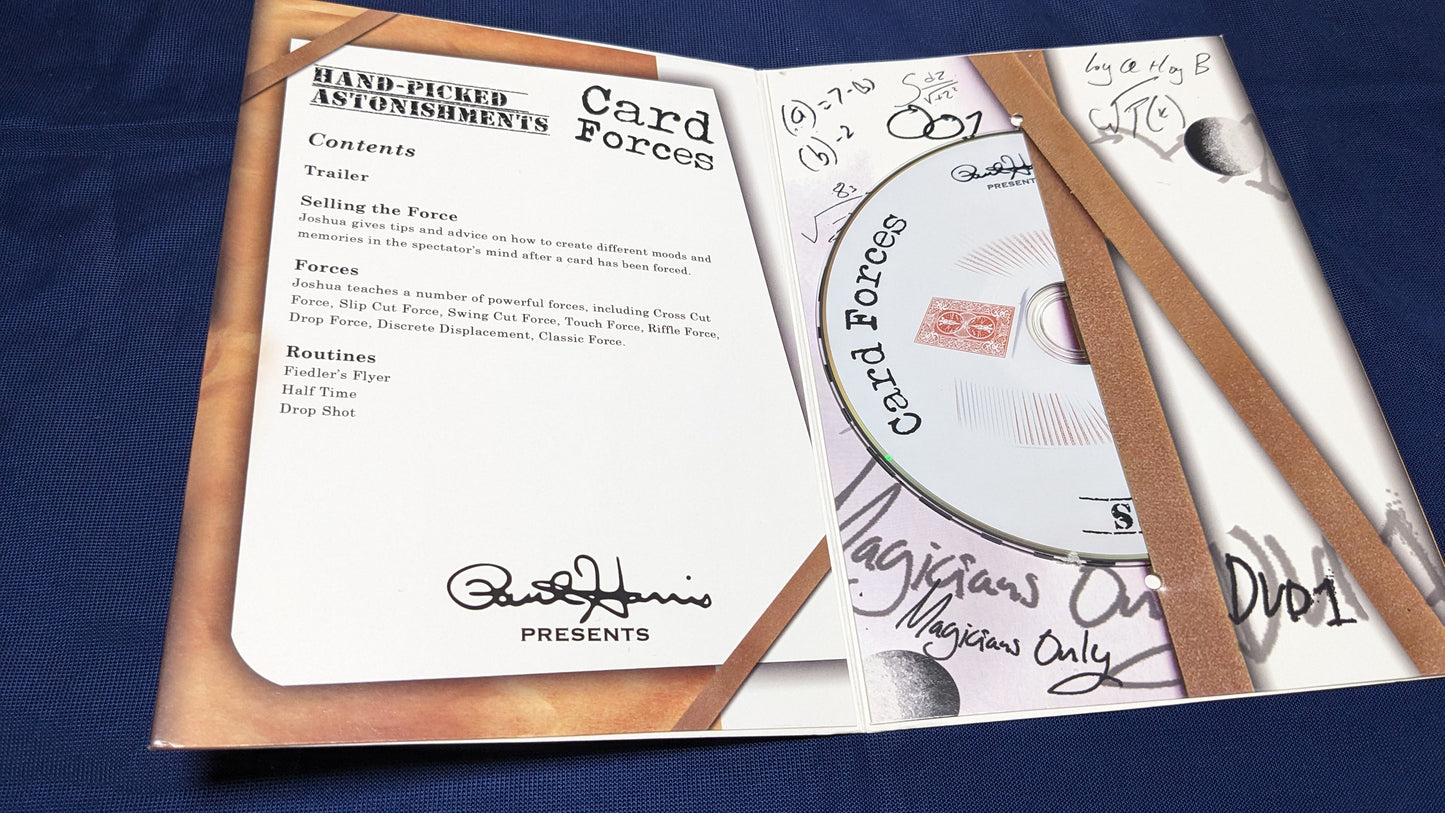 HAND-PICKED
ASTONISHMENTS
Card
Forces
Contents
Trailer
Selling the Force
Joshua gives tips and advice on how to create different moods and
memories in the spectator's mind after a card has been forced.
Forces
Joshua teaches a number of powerful forces, including Cross Cut
Force, Slip Cut Force, Swing Cut Force, Touch Force, Riffle Force,
Drop Force, Discrete Displacement, Classic Force.
Routines
Fiedler's Flyer
Half Time
Drop Shot
Paul Harris
PRESENTS
(a)=7-(b)
(b)-2
001
log a + log B
PRESENT
Card Forces
S
Magicians On
Magicians Only
DVD1